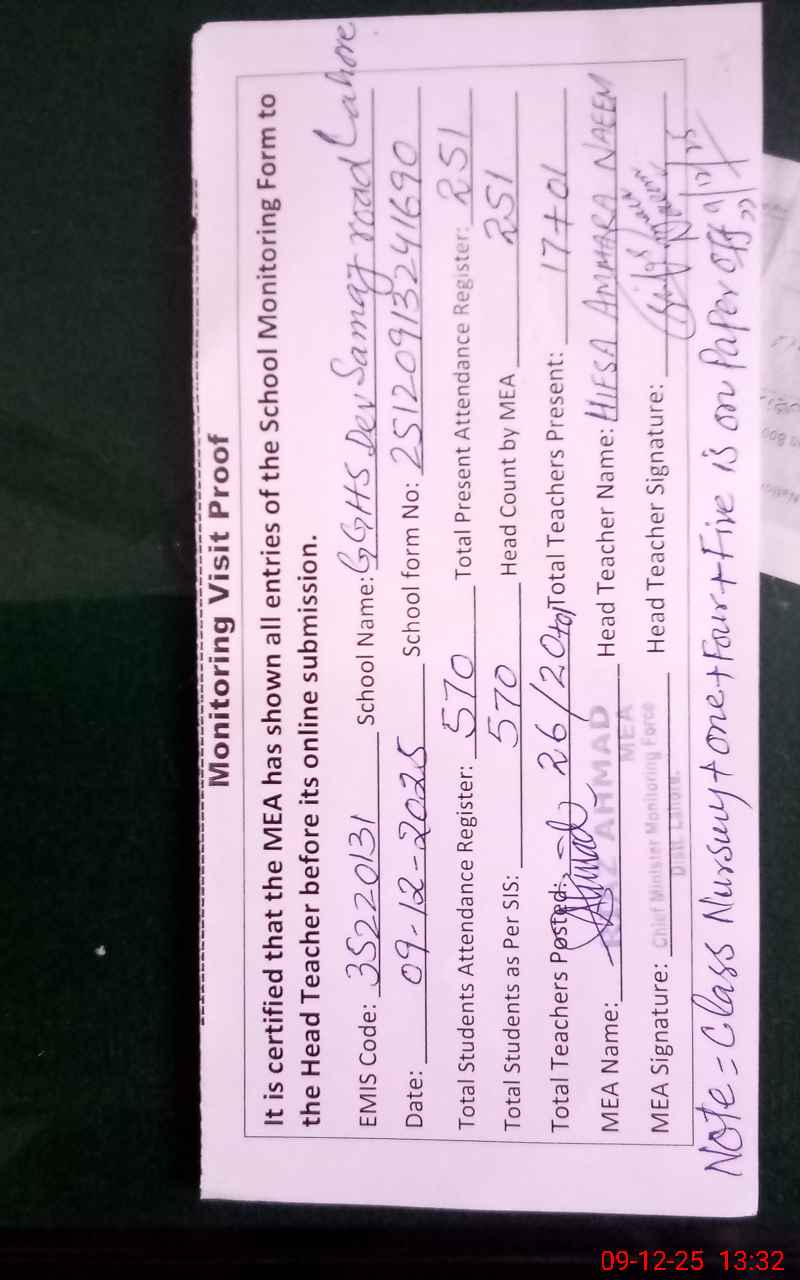 Monitoring Visit Proof
It is certified that the MEA has shown all entries of the School Monitoring Form to
the Head Teacher before its online submission.
EMIS Code: 35220131 School Name: GGHS Dev Samaj road Lahore
Date: 09-12-2025 School form No: 2512091324169​0
Total Students Attendance Register: 570 Total Present Attendance Register: 251
Total Students as Per SIS: 570 Head Count by MEA 251
Total Teachers Posted: 26/20 Total Teachers Present: 17+01
MEA Name: AHMAD Head Teacher Name: HIFSA AMMARA NAEEM
MEA
MEA Signature: Chief Minister Monitoring Force Head Teacher Signature:
Distt. Lahore.
Note = Class Nursury + one + Four + Five is on Paper off
09-12-25 13:32